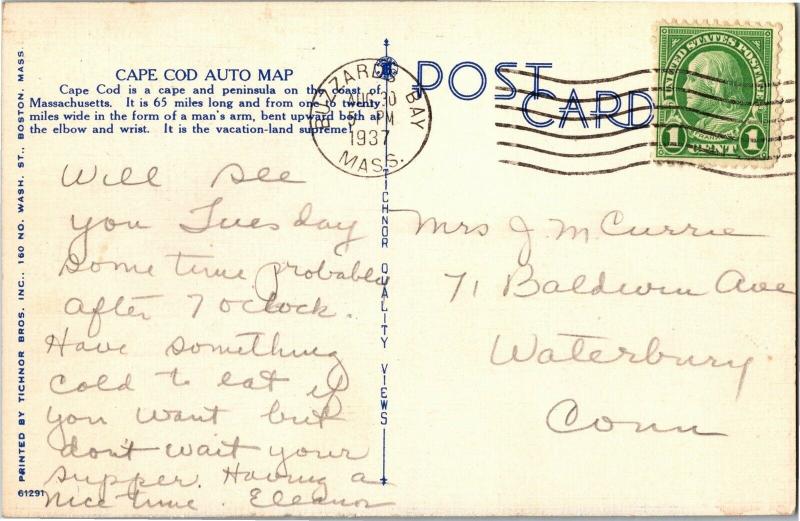 CAPE COD AUTO MAP
Cape Cod is a cape and peninsula on the coast of
Massachusetts. It is 65 miles long and from one to twenty
miles wide in the form of a man's arm, bent upward both at
the elbow and wrist. It is the vacation-land supreme!
Will see
you Tuesday
some time probably
after 7 oclock.
Have something
cold to eat if
you want but
don't wait your
supper. Having a
nice time. Eleanor
61291
PRINTED BY TICHNOR BROS. INC., 160 NO. WASH. ST., BOSTON, MASS.
TICHNOR QUALITY VIEWS
BUZZARDS BAY
AUG 30
5 PM
1937
MASS.
POST
CARD
UNITED STATES POSTAGE
FRANKLIN
1 CENT 1
Mrs J. M Currie
71 Baldwin Ave
Waterbury
Conn